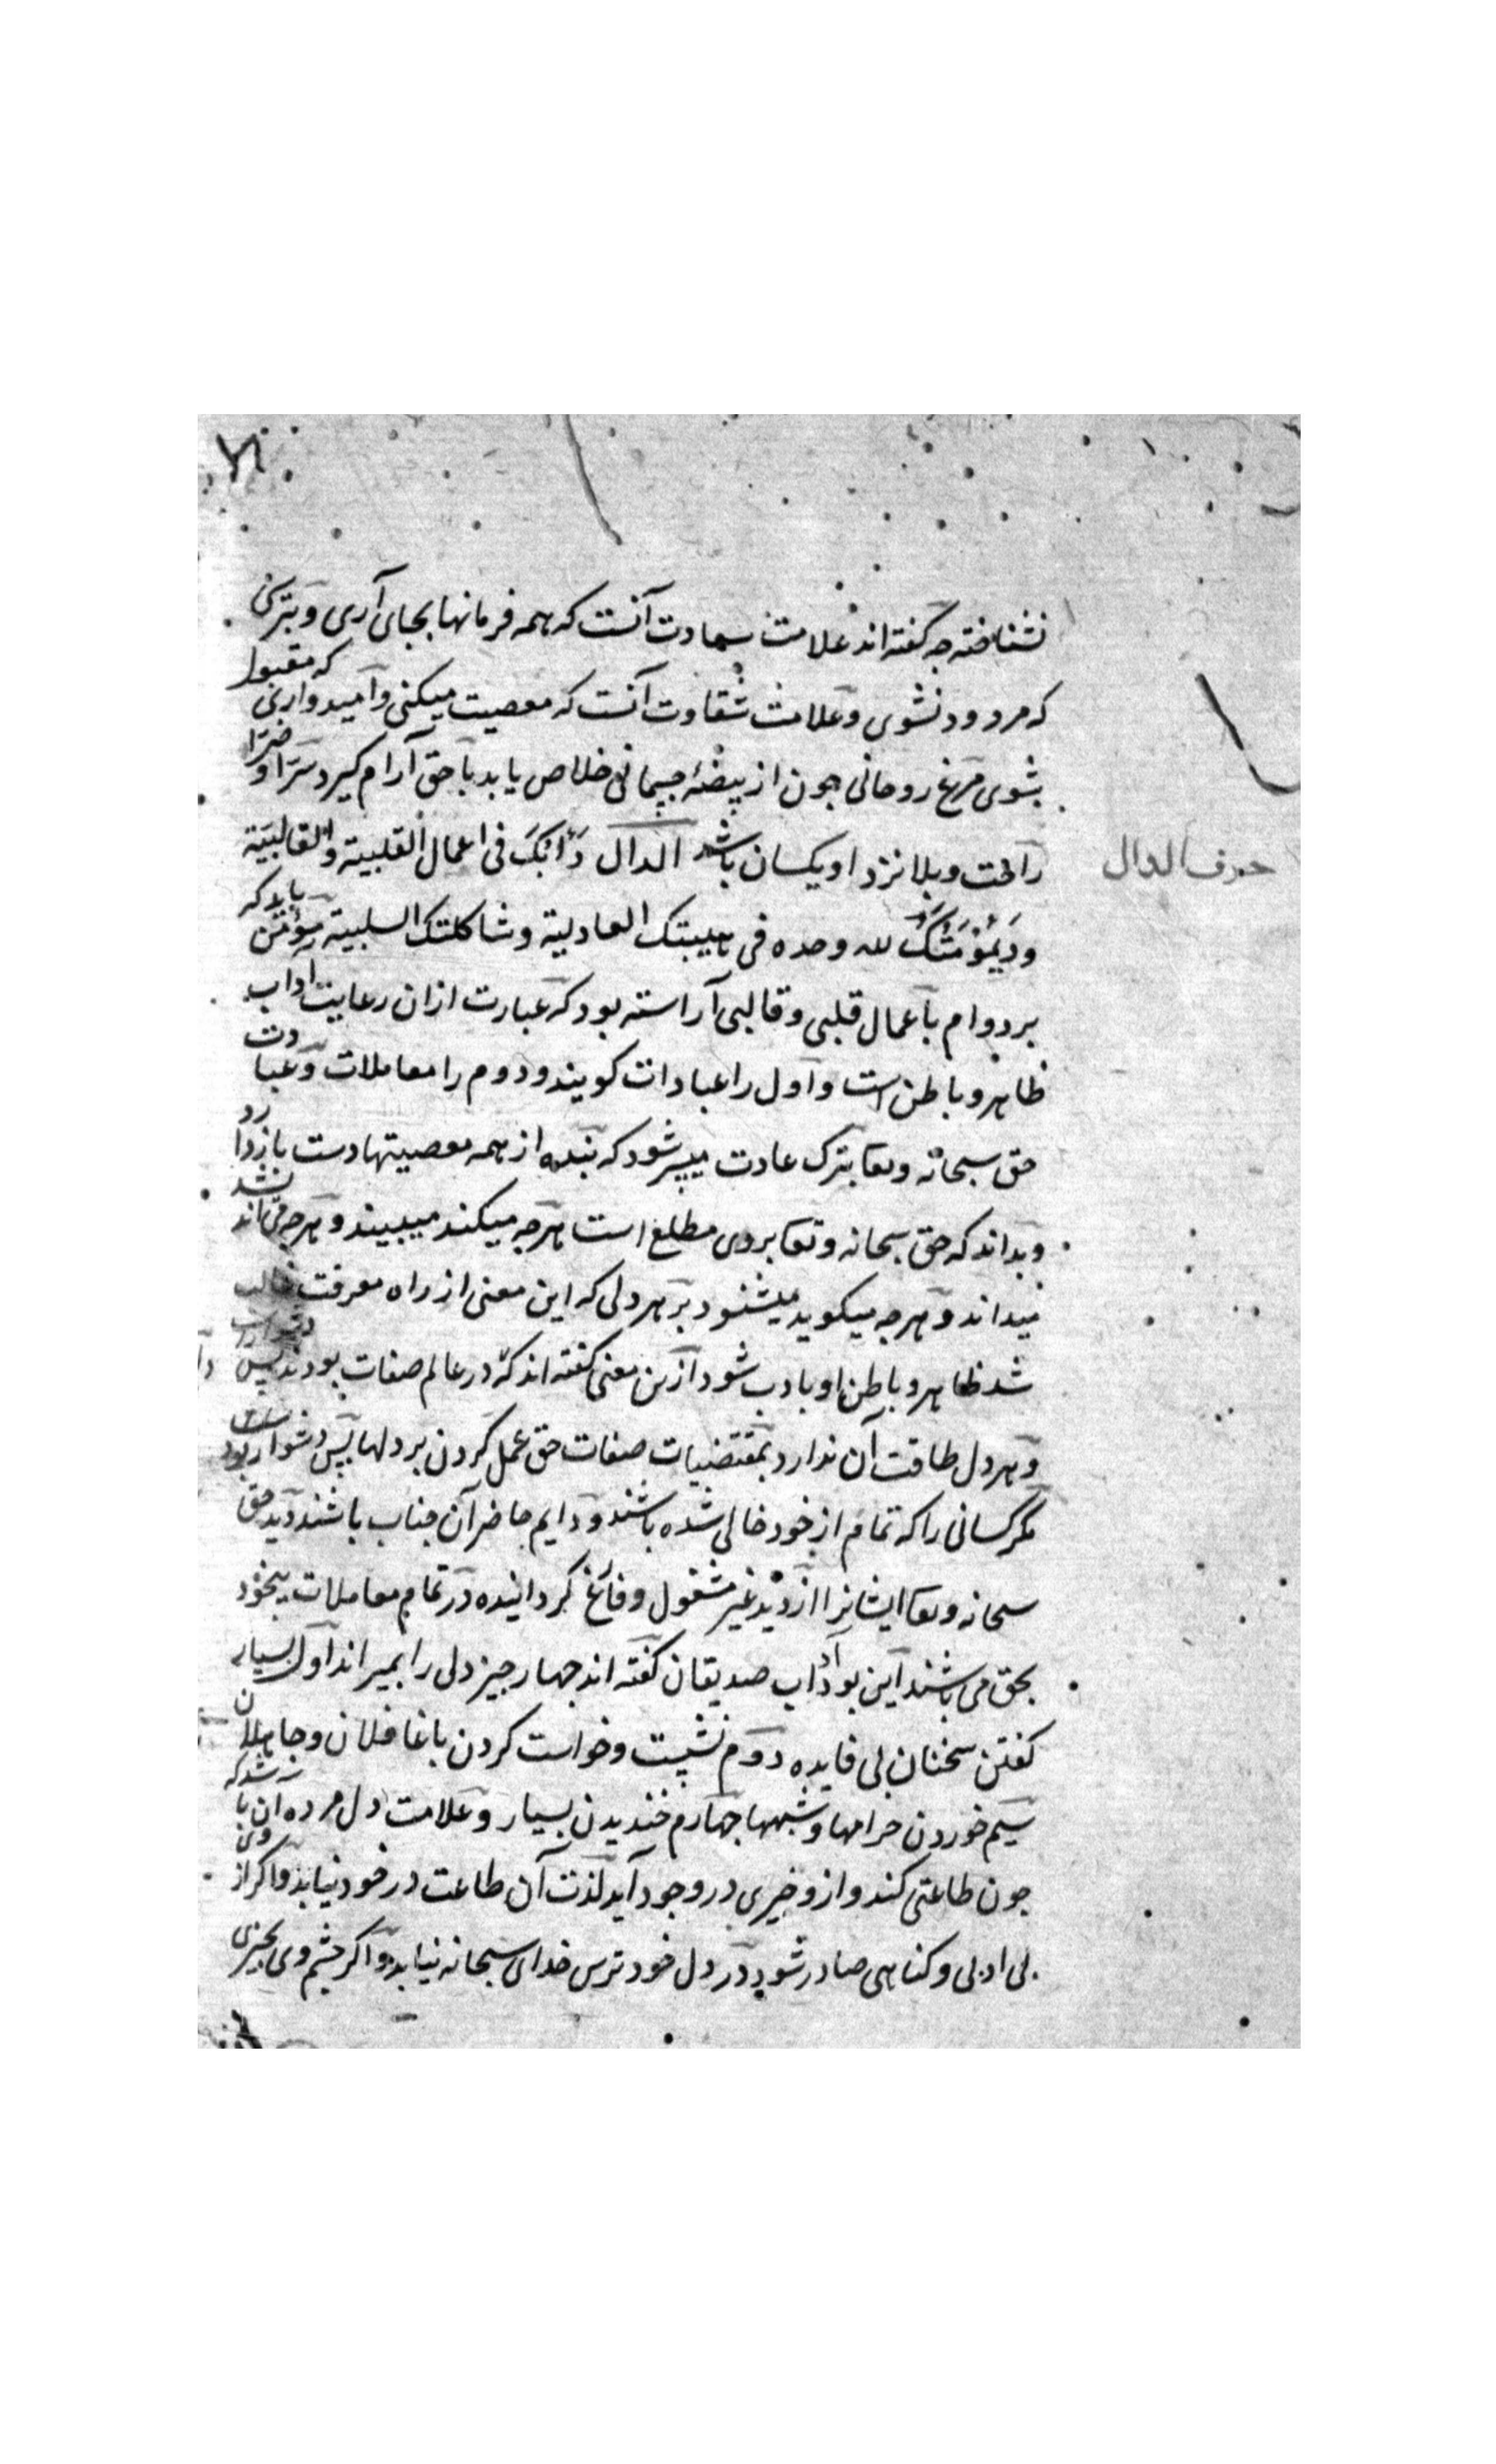 نشناخته جه كفته اند علامت سعادت آنست كه همه فرمانها بجاى آرى و بترسى
كه مردود نشوى و علامت شقاوت آنست كه معصيت ميكنى و اميد وارى كه مقبول
بشوى مرغ روحانى جون از بيضهٔ جسمانى خلاص يابد با حق آرام كيرد سرّا و ضرّا
راحت و بلا نزد او يكسان باشد الدال دَأبك فى اعمال القلبية والقالبيّة
حرف الدال
و ديمومتك لله وحده فى هيبتك العادلية و شاكلتك السلبية مؤمن بايد كه
بر دوام با عمال قلبى و قالبى آراسته بود كه عبارت از ان رعايت اداب
ظاهر و باطن است و اول را عبادات كويند و دوم را معاملات و عبادت
حق سبحانه و تعا بترك عادت ميسر شود كه بنده از همه معصيتها دست باز دارد
و بداند كه حق سبحانه و تعا بروى مطلع است هرجه ميكند ميبيند و هرجه مى انديشد
ميداند و هرجه ميكويد ميشنود بر هر دلى كه اين معنى از راه معرفت غالب
شد ظاهر و باطن او با ادب شود ازين معنى كفته اند كه در عالم صفات بودن بس دشوار است
و هر دل طاقت آن ندارد بمقتضيات صفات حق عمل كردن بر دلها بس دشوار بود
مكر كسانى را كه تمام از خود خالى شده باشند و دايم حاضر آن جناب باشند ديد حق
سبحانه و تعا ايشانرا از ديد غير مشغول و فارغ كردانيده در تمام معاملات بيخود
بحق مى باشند اين بود آداب صديقان كفته اند جهار جيز دلى را بميراند اول بسيار
كفتن سخنان بى فايده دوم نشست و خواست كردن با غافلان و جاهلان
سيم خوردن حرامها و شبهها جهارم خنديدن بسيار و علامت دل مرده ان باشد كه
جون طاعتى كند و ازو خيرى در وجود آيد لذت آن طاعت در خود نيابد و اكر از وى
بى ادبى و كناهى صادر شود در دل خود ترس خداى سبحانه نيابد و اكر جشم وى بجيزى